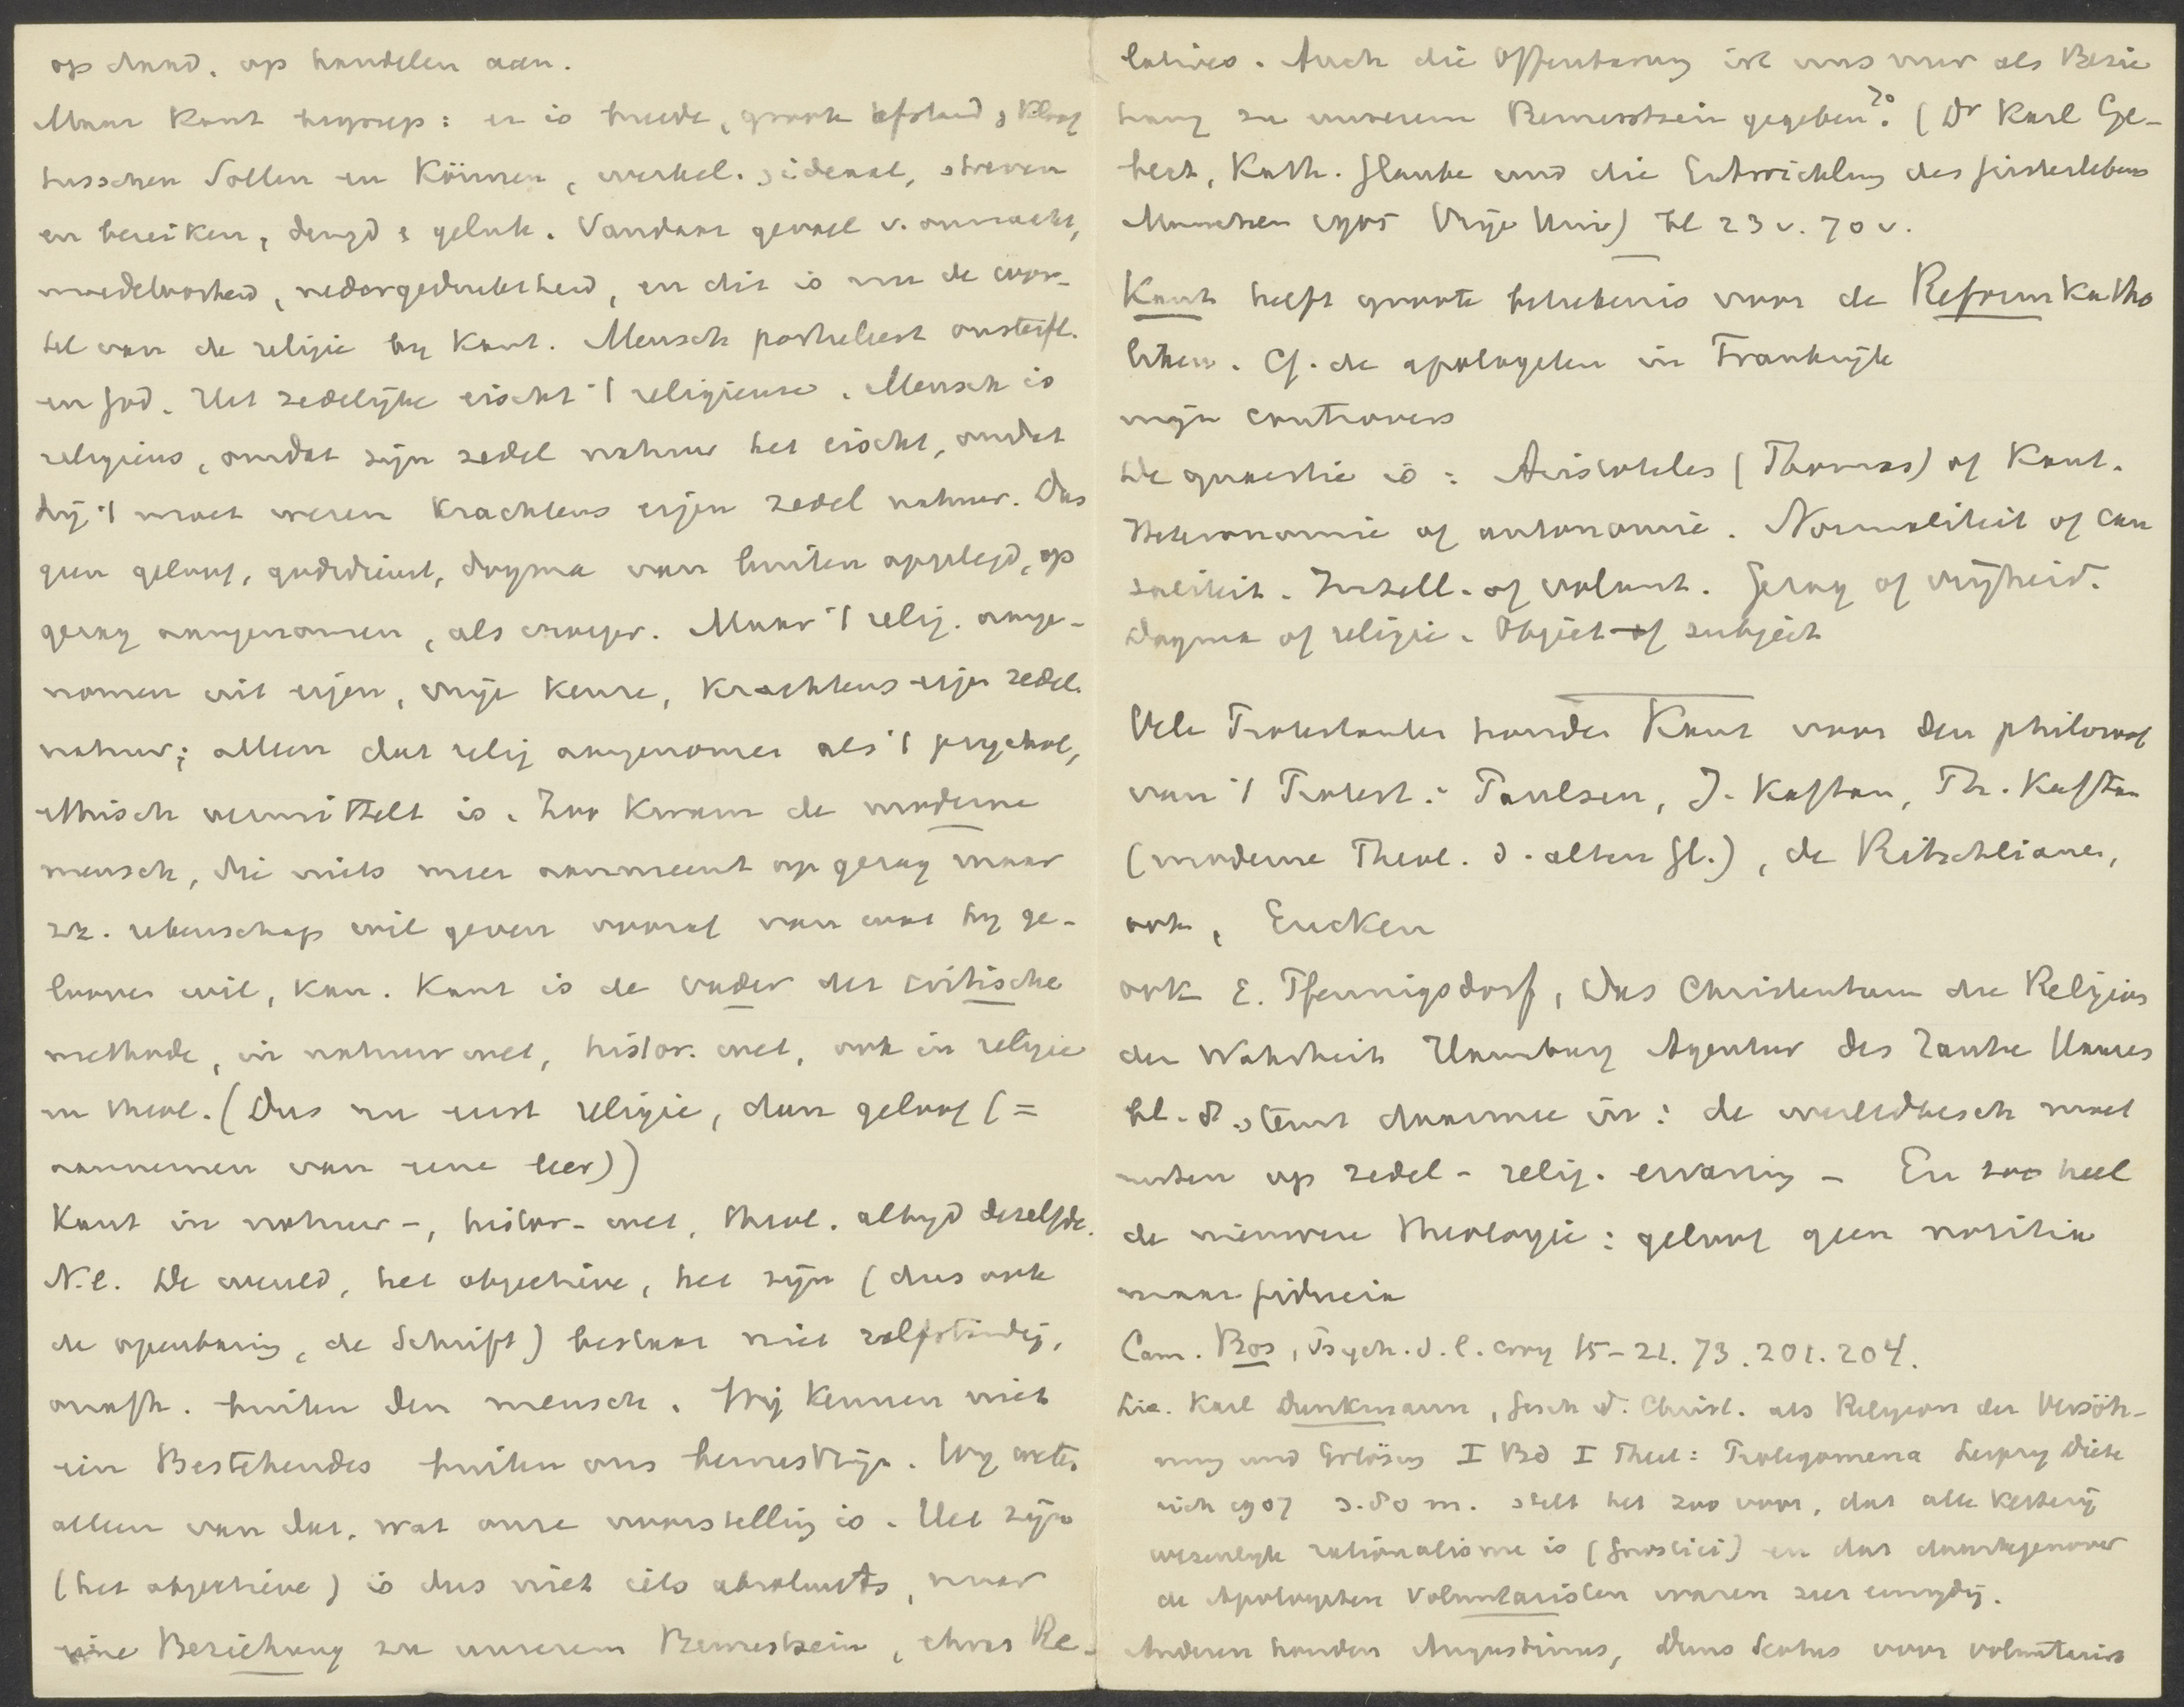 op daad, op handelen aan.
Maar Kant begreep: er is breede, groote afstand, kloof
tusschen Sollen en Können, werkel. & ideaal, streven
en bereiken, deugd & geluk. Vandaar gevoel v. onmacht,
moedeloosheid, nedergedruktheid, en dit is nu de wor-
tel van de religie by Kant. Mensch postuleert onsterfl.
en God. Het zedelijke eischt 't religieuse. Mensch is
religieus, omdat zijn zedel natuur het eischt, omdat
hij 't moet wezen krachtens eigen zedel natuur. Dus
geen geloof, godsdienst, dogma van buiten opgelegd, op
gezag aangenomen, als vroeger. Maar 't relig. aange-
nomen uit eigen, vrije keuze, krachtens eigen zedel.
natuur; alleen dat relig aangenomen als 't psychol,
ethisch vermittelt is. Zoo kwam de moderne
mensch, die niets meer aanneemt op gezag maar
zz. rekenschap wil geven vooraf van wat hy ge-
looven wil, kan. Kant is de vader der critische
methode, in natuurwet, histor. wet, ook in religie
en theol. (Dus nu eerst religie, dan geloof (=
aannemen van eene leer))
Kant in natuur-, histor- wet, theol. altyd dezelfde.
N.l. De wereld, het objectieve, het zijn (dus ook
de openbaring, de Schrift) bestaat niet zelfstandig,
onafh. buiten den mensch. Wij kennen niet
ein Bestehendes buiten ons bewustzijn. Wy weten
alleen van dat, wat onze voorstelling is. Het zijn
(het objectieve) is dus niet iets absoluuts, maar
eine Beziehung zu unserem Bewustsein, etwas Re-
latives. Auch die Offenbarung ist uns nur als Bezie
hung zu unserem Bewusstsein gegeben. 20 (Dr Karl Ge-
bert, Kath. Glaube und die Entwicklung des Geisteslebens
Munchen 1905 Vrije Univ) bl 23 v. 70 v.
Kant heeft groote beteekenis voor de Reformkatho
lieken. Cf. de apologeten in Frankrijk
mijn controvers
De quaestie is: Aristoteles (Thomas) of Kant.
Heteronomie of autonomie. Normaliteit of cau
saliteit. Intell. of volunt. Gezag of vrijheid.
Dogma of religie. Object of subject
Vele Protestanten houden Kant voor den philosoof
van 't Protest.: Paulsen, J. Kaftan, Th. Kaftan
(moderne Theol. d. alten Gl.), de Ritschlianen,
ook, Eucken
ook E. Pfennigsdorf, Das Christentum die Religion
der Wahrheit Hamburg Agentur des Rauhe Hauses
bl. 8. stemt daarmee in: de wereldbesch moet
rusten op zedel - relig. ervaring - En zoo heel
de nieuwere theologie: geloof geen notitia
maar fiducia
Cam. Bos, Psych. d. l. croy 15-21. 73. 201. 204.
Lic. Karl Dunkmann, Gesch d. Christ. als Religion der Versöh-
nung und Erlösung I Bd I Theil: Prolegomena Leipzig Diete
rich 1907 3.80 m. stelt het zoo voor, dat alle ketterij
wezenlyk rationalisme is (Gnostici) en dat daartegenover
de Apologeten voluntaristen waren zeer eenzydig.
Anderen houden Augustinus, Duns Scotus voor voluntaris